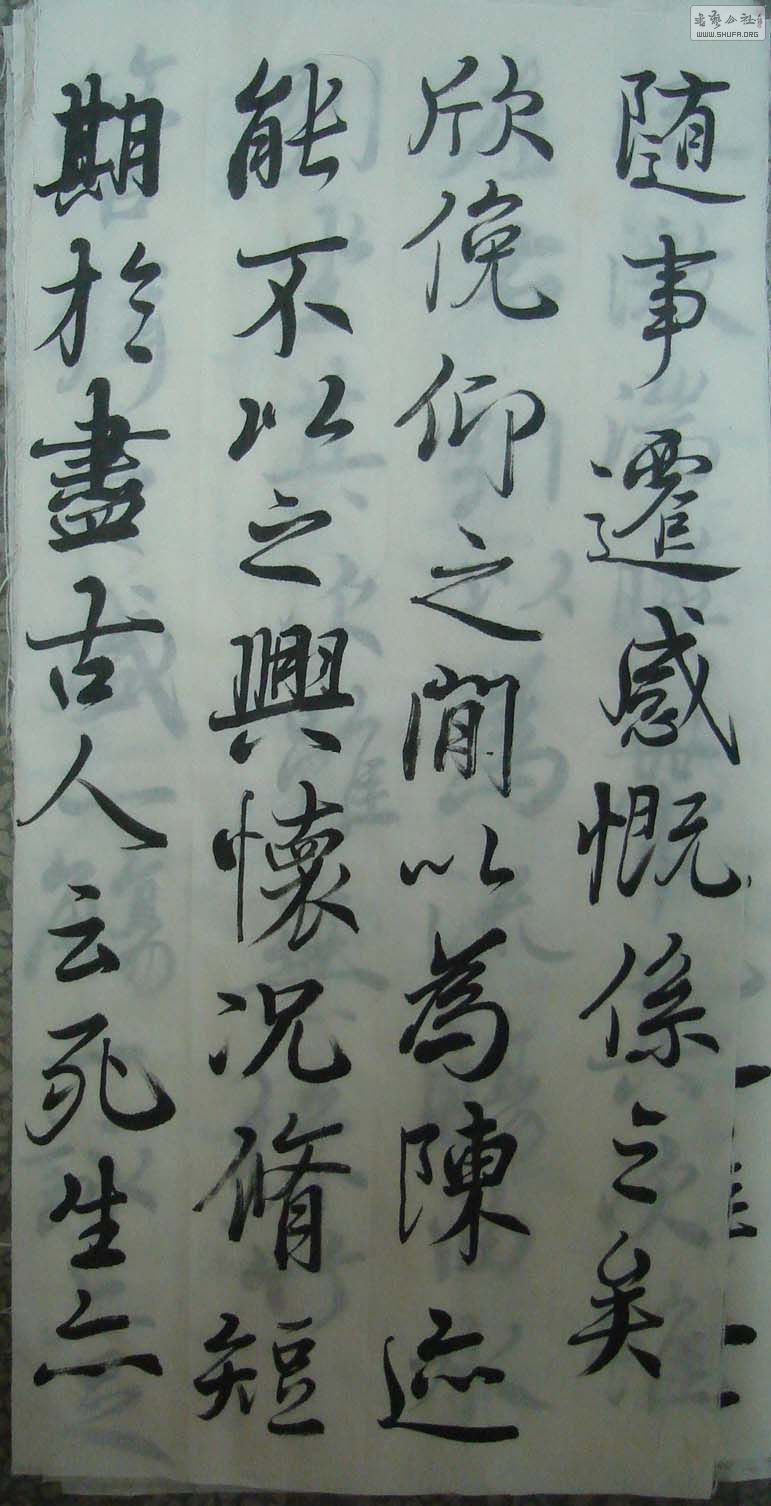 随事遷感慨係之矣
欣俛仰之閒以為陳迹
能不以之興懷况脩短
期於盡古人云死生亦
公社
WWW.SHUFA.ORG